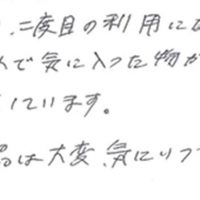 、二度目の利用にな
んで気に入った物が
しています。
品は大変、気にいって